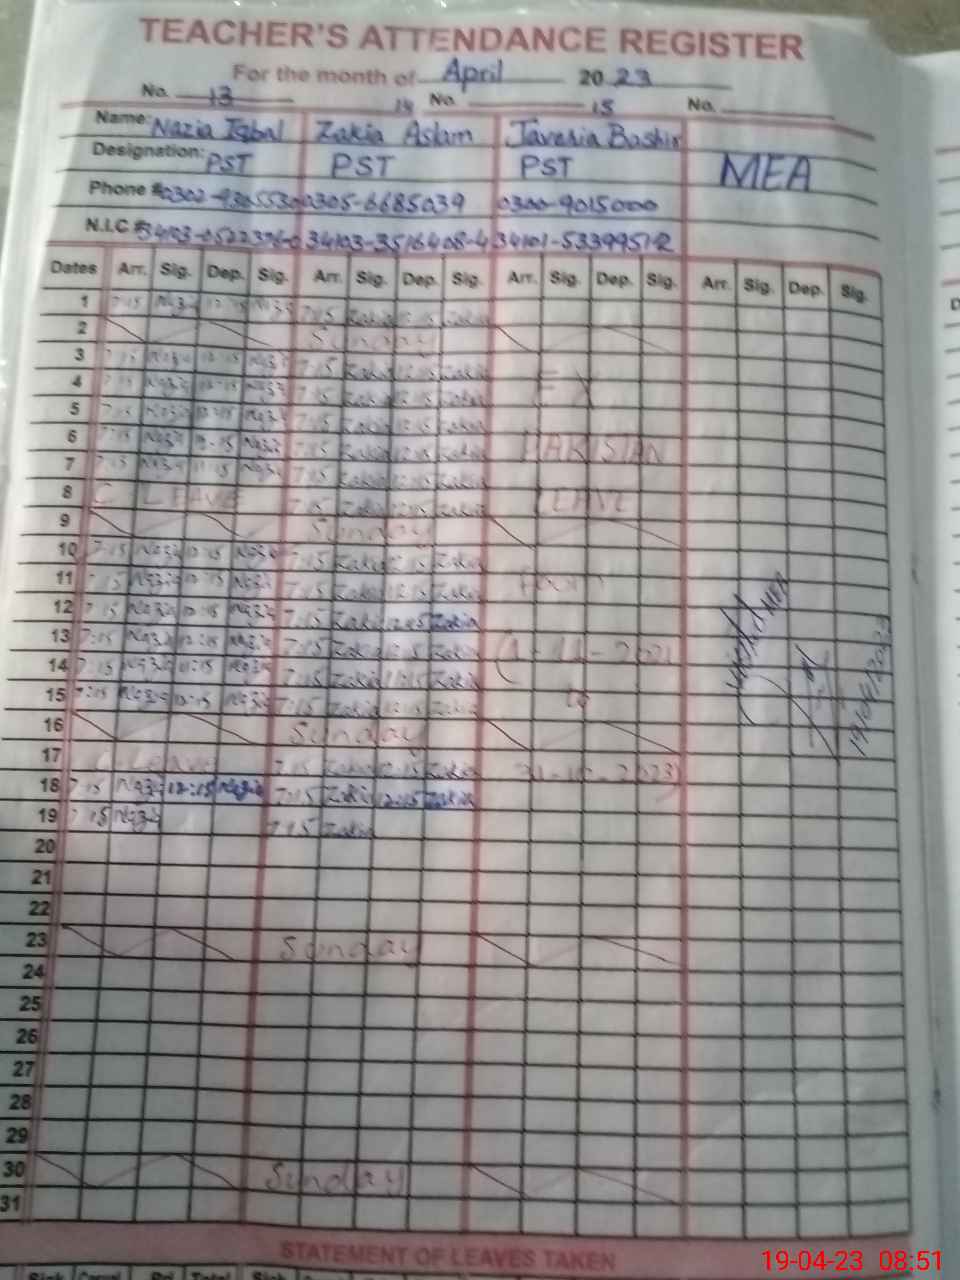 TEACHER'S ATTENDANCE REGISTER
For the month of April 2023
No. 13 14 No. 15 No.
Name: Nazia Iqbal Zakia Aslam Javeria Bashir
Designation: PST PST PST MEA
Phone # 0305-6685039 0300-9015000
N.I.C # 34103-3516408-4
Dates Arr. Sig. Dep. Sig. Arr. Sig. Dep. Sig. Arr. Sig. Dep. Sig. Arr. Sig. Dep. Sig.
1 7:15 Nazia 12:15 Nazia 7:15 Zakia 12:15 Zakia
2 Sunday
3 7:15 Nazia 12:15 Nazia 7:15 Zakia 12:15 Zakia
4 7:15 Nazia 12:15 Nazia 7:15 Zakia 12:15 Zakia EX
5 7:15 Nazia 12:15 Nazia 7:15 Zakia 12:15 Zakia
6 7:15 Nazia 12:15 Nazia 7:15 Zakia 12:15 Zakia PAKISTAN
7 7:15 Nazia 11:15 Nazia 7:15 Zakia 12:15 Zakia
8 C. LEAVE 7:15 Zakia 12:15 Zakia LEAVE
9 Sunday
10 7:15 Nazia 12:15 Nazia 7:15 Zakia 12:15 Zakia
11 7:15 Nazia 12:15 Nazia 7:15 Zakia 12:15 Zakia From
12 7:15 Nazia 12:15 Nazia 7:15 Zakia 12:15 Zakia
13 7:15 Nazia 12:15 Nazia 7:15 Zakia 12:15 Zakia
14 7:15 Nazia 11:15 Nazia 7:15 Zakia 11:15 Zakia
15 7:15 Nazia 12:15 Nazia 7:15 Zakia 12:15 Zakia to
16 Sunday
17 C. Leave 7:15 Zakia 12:15 Zakia
18 7:15 Nazia 12:15 Nazia 7:15 Zakia 12:15 Zakia
19 7:15 Nazia 7:15 Zakia
20
21
22
23 Sunday
24
25
26
27
28
29
30 Sunday
31
STATEMENT OF LEAVES TAKEN
19-04-23 08:51